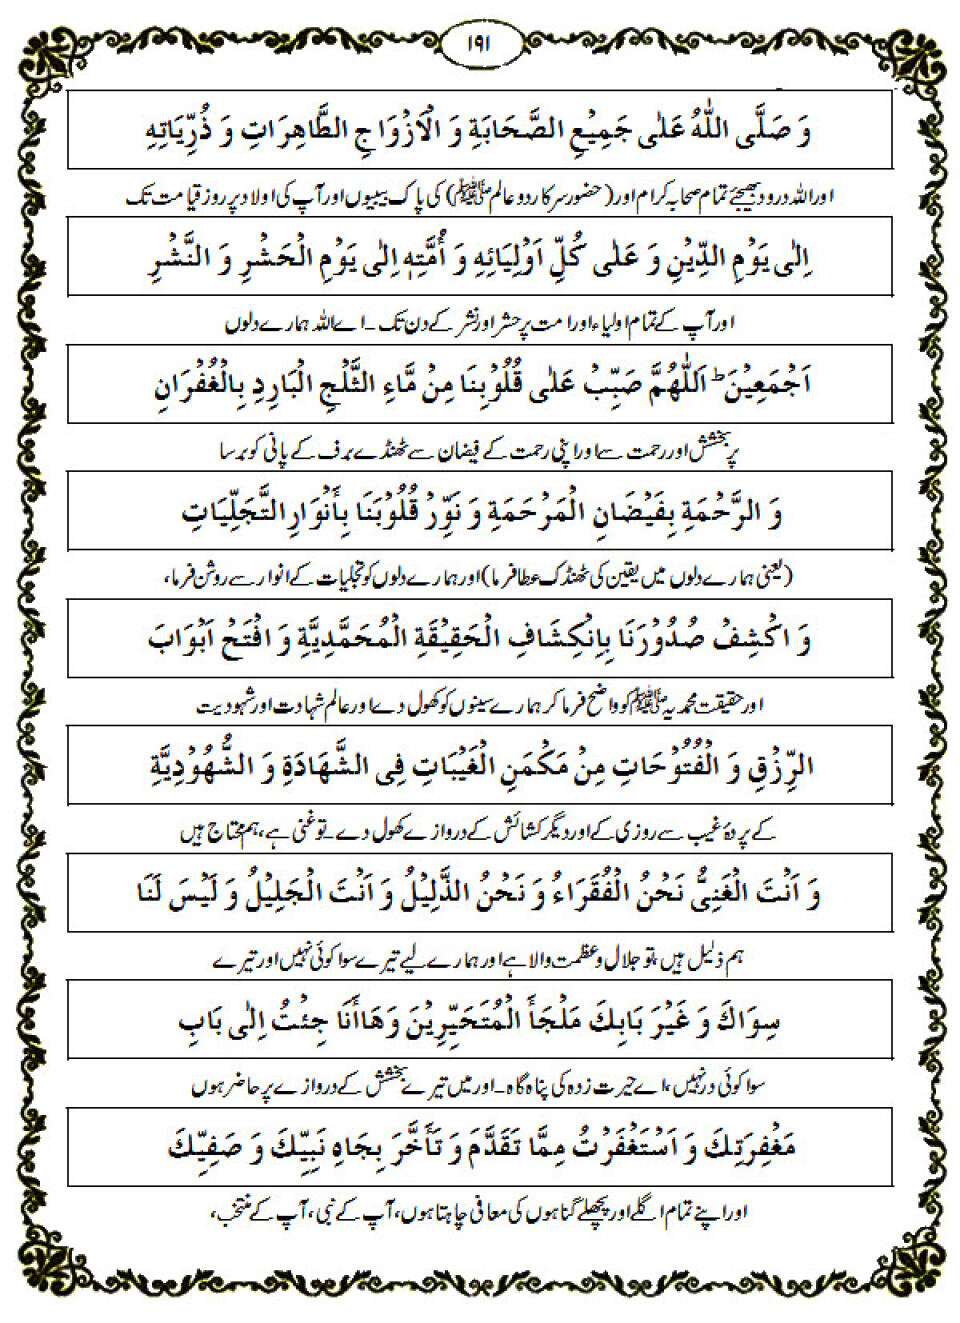 ١٩١
وَ صَلَّى اللّٰهُ عَلٰى جَمِيْعِ الصَّحَابَةِ وَ الْاَزْوَاجِ الطَّاهِرَاتِ وَ ذُرِّيَاتِهٖ
اور اللہ درود بھیجئے تمام صحابہ کرام اور (حضور سرکار دو عالم ﷺ) کی پاک بیبیوں اور آپ کی اولاد پر روز قیامت تک
اِلٰى يَوْمِ الدِّيْنِ وَ عَلٰى كُلِّ اَوْلِيَائِهٖ وَ اُمَّتِهٖ اِلٰى يَوْمِ الْحَشْرِ وَ النَّشْرِ
اور آپ کے تمام اولیاء اور امت پر حشر اور نشر کے دن تک ۔ اے اللہ ہمارے دلوں
اَجْمَعِيْنَ ؕ اَللّٰهُمَّ صَبِّبْ عَلٰى قُلُوْبِنَا مِنْ مَّاءِ الثَّلْجِ الْبَارِدِ بِالْغُفْرَانِ
پر بخشش اور رحمت سے اور اپنی رحمت کے فیضان سے ٹھنڈے برف کے پانی کو برسا
وَ الرَّحْمَةِ بِفَيْضَانِ الْمَرْحَمَةِ وَ نَوِّرْ قُلُوْبَنَا بِأَنْوَارِ التَّجَلِّيَاتِ
(یعنی ہمارے دلوں میں یقین کی ٹھنڈک عطا فرما) اور ہمارے دلوں کو تجلیات کے انوار سے روشن فرما،
وَ اكْشِفْ صُدُوْرَنَا بِاِنْكِشَافِ الْحَقِيْقَةِ الْمُحَمَّدِيَّةِ وَ افْتَحْ اَبْوَابَ
اور حقیقت محمدیہ ﷺ کو واضح فرما کر ہمارے سینوں کو کھول دے اور عالم شہادت اور شہودیت
الرِّزْقِ وَ الْفُتُوْحَاتِ مِنْ مَكْمَنِ الْغَيْبَاتِ فِى الشَّهَادَةِ وَ الشُّهُوْدِيَّةِ
کے پردۂ غیب سے روزی کے اور دیگر کشائش کے دروازے کھول دے ۔ تو غنی ہے، ہم محتاج ہیں
وَ اَنْتَ الْغَنِىُّ نَحْنُ الْفُقَرَاءُ وَ نَحْنُ الذَّلِيْلُ وَ اَنْتَ الْجَلِيْلُ وَ لَيْسَ لَنَا
ہم ذلیل ہیں، تو جلال و عظمت والا ہے اور ہمارے لیے تیرے سوا کوئی نہیں اور تیرے
سِوَاكَ وَ غَيْرَ بَابِكَ مَلْجَأَ الْمُتَحَيِّرِيْنَ وَهَاأَنَا جِئْتُ اِلٰى بَابِ
سوا کوئی در نہیں، اے حیرت زدہ کی پناہ گاہ ۔ اور میں تیرے بخشش کے دروازے پر حاضر ہوں
مَغْفِرَتِكَ وَ اَسْتَغْفَرْتُ مِمَّا تَقَدَّمَ وَ تَأَخَّرَ بِجَاهِ نَبِيِّكَ وَ صَفِيِّكَ
اور اپنے تمام اگلے اور پچھلے گناہوں کی معافی چاہتا ہوں، آپ کے نبی، آپ کے منتخب،